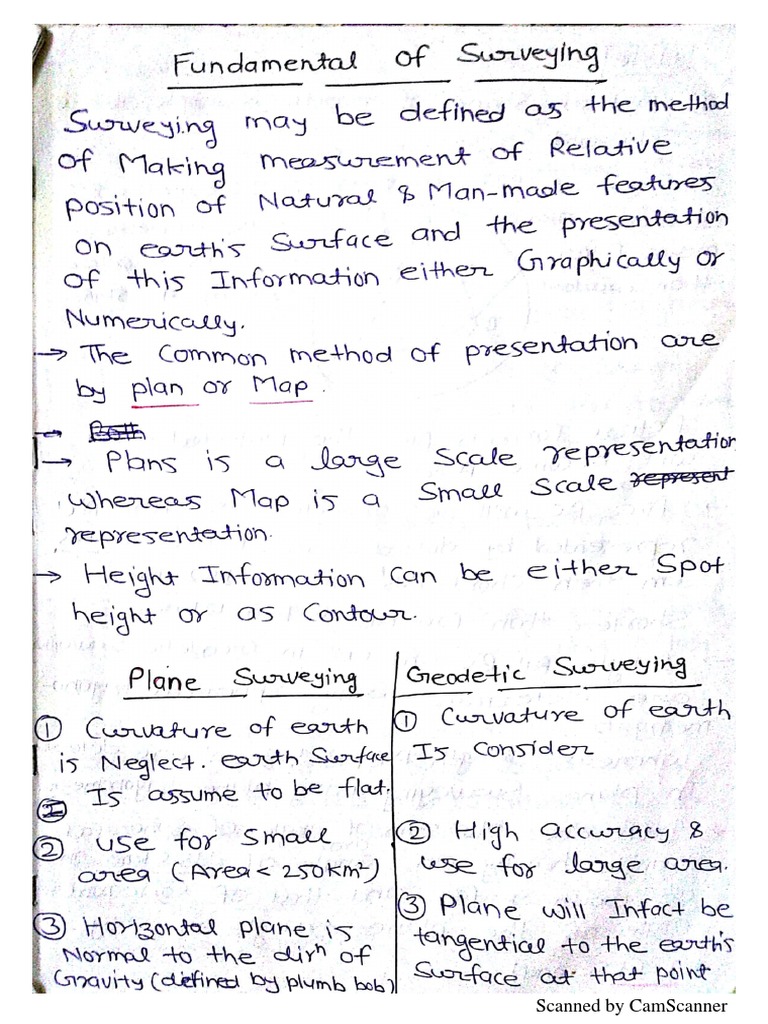 Fundamental of Surveying
Surveying may be defined as the method
of Making measurement of Relative
position of Natural & Man-made features
on earth's Surface and the presentation
of this Information either Graphically or
Numerically.
→ The Common method of presentation are
by plan or Map.
→ Both
→ Plans is a large Scale representation
whereas Map is a Small Scale represent
representation.
→ Height Information Can be either Spot
height or as Contour.
Plane Surveying
① Curvature of earth
is Neglect. earth Surface
Is assume to be flat.
② use for Small
area (Area < 250km²)
③ Horizontal plane is
Normal to the dirⁿ of
Gravity (defined by plumb bob)
Geodetic Surveying
① Curvature of earth
Is Consider
② High accuracy &
use for large area.
③ Plane will Infact be
tangential to the earth's
Surface at that point
Scanned by CamScanner